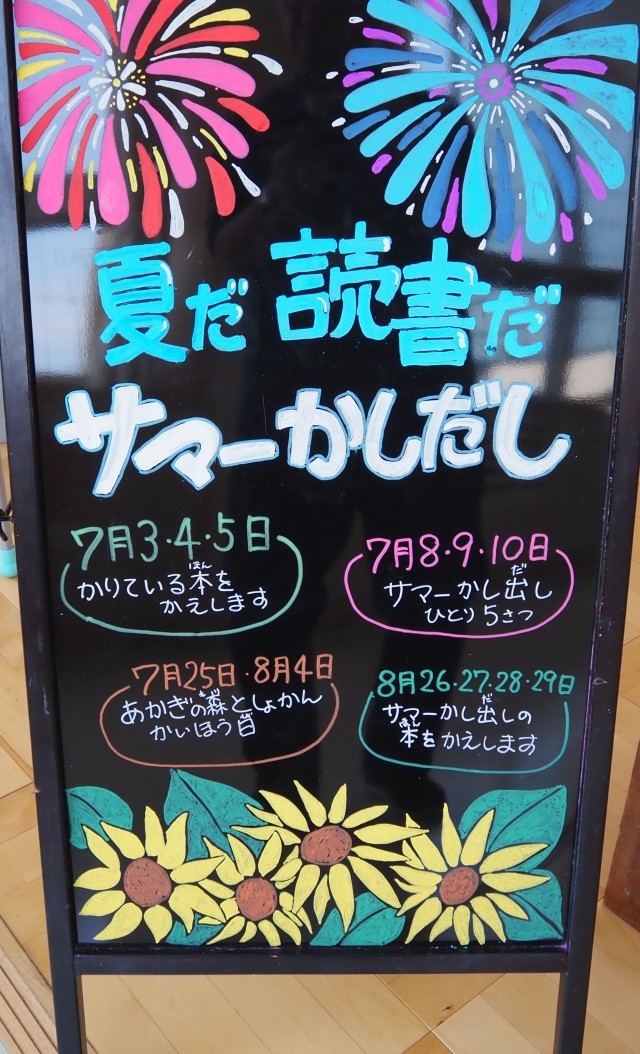 夏だ 読書だ
サマーかしだし
7月3・4・5日
かりている本を
ほん
かえします
7月8・9・10日
サマーかし出し
だ
ひとり5さつ
7月25日・8月4日
あかぎの森としょかん
もり
かいほう日
8月26・27・28・29日
サマーかし出しの
だ
本をかえします
ほん